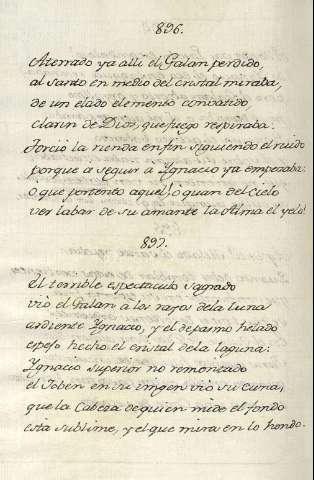 896.
Aterrado ya alli el Galan perdido,
al santo en medio del cristal miraba,
de un elado elemento conbatido,
clarin de Dios, que fuego respiraba.
Torciò la rienda enfin siguiendo el ruido
porque a seguir a Ygnacio ya empezaba:
o que portento aquel! ò quan del Cielo
ver labar de su amante la Alma el yelo!
897.
El terrible espectaculo sagrado
viò el Galan à los rayos dela Luna
ardiente Ygnacio, y el de pasmo helado
espejo hecho el cristal dela laguna:
Ygnacio superior no remontado
el Joben en su imgen viò su Cuna,
que la Cabeza de quien mide el fondo
está sublime, y el que mira en lo hondo.